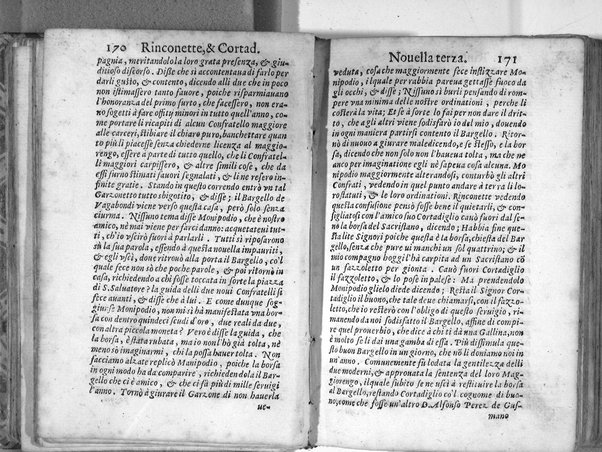 170 Rinconette, & Cortad.
pagnia, meritandolo la loro grata presenza, & giu-
ditioso discorso. Disse che si accontentaua di farlo per
darli gusto, & contento, dicendo alli due che in poco
non istimassero tanto fauore, poiche risparmiauano
l'honoranza del primo furto, che facessero, non era-
no sogetti à fare offitij minori in tutto quell'anno, co-
me portare li ricapiti di alcun Confratello maggiore
alle carceri, stibiare il chiaro puro, banchettare quan
to più li piacesse senza chiederne licenza al maggio-
rengo, essere à parte di tutto quello, che li Confratel-
li maggiori carpissero, & altre simili cose, che da
essi furno stimati fauori segnalati, & li ne resero in-
finite gratie. Stando in questo correndo entrò vn tal
Garzonetto tutto sbigotito, & disse; il Bargello de
Vagabondi viene verso questa casa, però solo senza
ciurma. Nissuno tema disse Monipodio, che è nostro
amico, nè mai viene per farci danno: acquetateui tut-
ti, ch'io vscirò fuori à parlarli. Tutti si riposarono
in la sua parola, essendo à questa nouella impauriti,
& egli vscì, doue ritrouò alla porta il Bargello, co'l
quale fece non sò che poche parole, & poi ritornò in
casa, richiedendo à chi fosse toccata in sorte la piazza
di S. Saluatore? la guida delli due noui Confratelli si
fece auanti, & disse che à lui. E come dunque sog-
giunse Monipodio, non mi si hà manifestata vna bor-
sa con dentro quindeci scudi d'oro, due reali da due,
con altra piccola moneta? Vero è disse la guida, che
la borsa, è stata rubata, ma io non l'hò già tolta, nè
menosò imaginarmi, chi la possa hauer tolta. Non
facciamo alzate replicò Monipodio, poiche la borsa
in ogni modo ha da comparire, richiedendola il Bar-
gello che ci è amico, & che ci fà più di mille seruigi
l'anno. Tornò à giurare il Garzone di non hauerla
uc-
Nouella terza. 171
veduta, cosa che maggiormente fece instizzare Mo-
nipodio, il quale per rabbia pareua gettasse fuoco da
gli occhi, & disse; Nissuno si burli pensando di rom-
pere vna minima delle nostre ordinationi, perche li
costerà la vita; Et se à sorte lo fai per non dare il drit-
to, che a gli altri viene sodisfarò io del mio, douendo
in ogni maniera partirsi contento il Bargello. Ritor-
nò di nuouo a giurare maledicendo, e se stesso, e la bor
sa, dicendo che non solo non l'haueua tolta, ma che ne
anco per imaginatione egli nè sapeua cosa alcuna. Mo
nipodio maggiormente alterandosi, conturbò gli altri
Confrati, vedendo in quel punto andare à terra li lo-
ro statuti, & le loro ordinationi. Rinconette vedendo
questa confusione pensò fosse bene il quietarli, & con-
sigliatosi con l'amico suo Cortadiglio cauò fuori dal se-
no la borsa del Sacristano, dicendo; Habbia fine que-
sta lite Signori poiche questa è la borsa, chiesta del Bar
gello, senza che pure ui manchi un sol quattrino; & il
mio compagno hoggi l'hà carpita ad un Sacristano cō
un fazzoletto per gionta. Cauò fuori Cortadiglio
il fazzoletto, & lo pose in palese: Ma prendendolo
Monipodio glielo diede dicendo; Resta il Signor Cor-
tadiglio il buono, che tale deue chiamarsi, con il fazzo-
letto, che io resterò con l'obligo di questo seruigio, ri-
manendo da noi sodisfatto il Bargello, affine di compi-
re quel prouerbio, che dice à chi ti dà una Gallina, non
è molto se li dai una gamba di essa. Più dissimula que-
sto buon Bargello in un giorno, che nō li doniamo noi in
un'anno. Comunemente fù lodata la gentilezza delli
due moderni, & approuata la sentenza del loro Mag-
giorengo, il quale subito se ne uscì à restituire la borsa
al Bargello, restando Cortadiglio co'l cognome di buo-
no, come che fosse un'altro D. Alfonso Perez de Gus-
mano